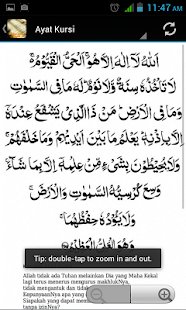 11:47 AM
Ayat Kursi
اَللّٰهُ لَآ اِلٰهَ اِلَّا هُوَ ۚ اَلْحَيُّ الْقَيُّوْمُ ۚ
لَا تَأْخُذُهٗ سِنَةٌ وَّلَا نَوْمٌ ؕ لَهٗ مَا فِى السَّمٰوٰتِ وَ
مَا فِى الْاَرْضِ ؕ مَنْ ذَا الَّذِيْ يَشْفَعُ
عِنْدَهٗۤ اِلَّا بِاِذْنِهٖ ؕ يَعْلَمُ مَا بَيْنَ اَيْدِيْهِمْ وَمَا خَلْفَهُمْ ۚ
وَلَا يُحِيْطُوْنَ بِشَيْءٍ مِّنْ عِلْمِهٖۤ اِلَّا بِمَا شَآءَ ۚ
وَسِعَ كُرْسِيُّهُ السَّمٰوٰتِ وَالْاَرْضَ ۚ
وَلَا يَئُوْدُهٗ حِفْظُهُمَا ۚ
وَهُوَ الْعَلِيُّ الْعَظِيْمُ
Tip: double-tap to zoom in and out.
Allah tidak ada Tuhan melainkan Dia yang Maha Kekal
lagi terus menerus mengurus makhlukNya,
tidak mengantuk dan tidak
KepunyaanNya apa yang
Siapakah yang dapat
tanpa izinNya?